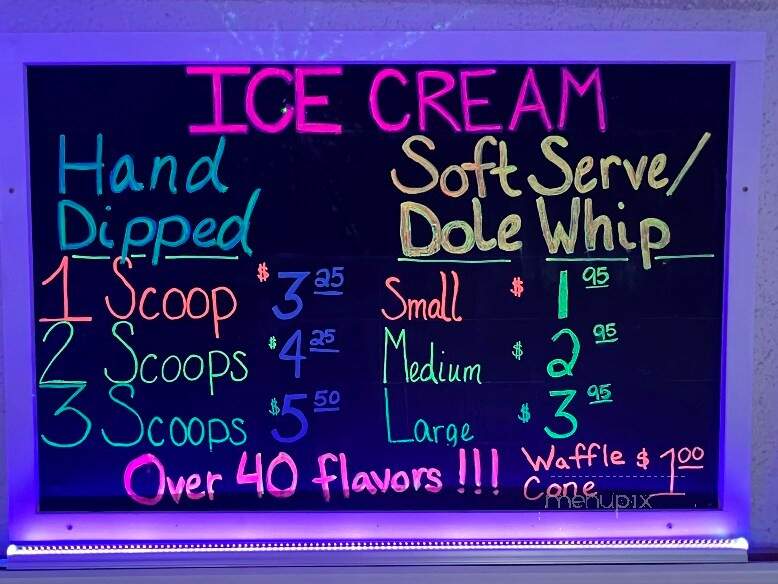 ICE CREAM
Hand
Dipped
1 Scoop $3.25
2 Scoops $4.25
3 Scoops $5.50
Soft Serve/
Dole Whip
Small $1.95
Medium $2.95
Large $3.95
Over 40 flavors!!!
Waffle $1.00
Cone
menupix